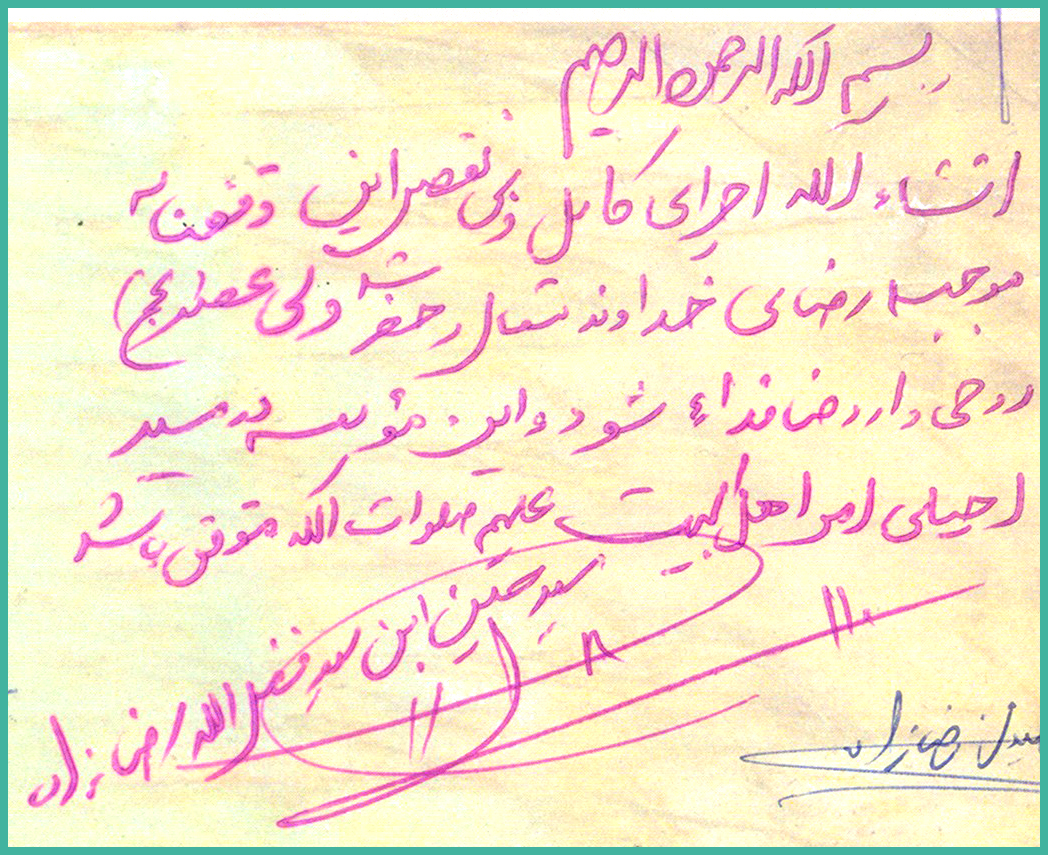 بسم الله الرحمن الرحیم
انشاء الله اجرای کامل و بی نقص این وقفنامه
موجب رضای خداوند متعال و حضرت ولی عصر (عج)
روحی و ارواحنا فداء شود و این مؤسسه در مسیر
احیای امر اهل البیت علیهم صلوات الله موفق باشد
سید حسین ابن سید فضل الله رضایی زاده
۱۱
۸
۱۱۰
رضا زاده